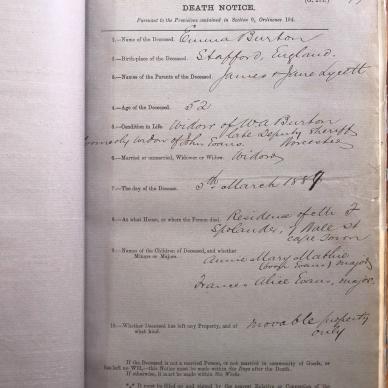 DEATH NOTICE.
Pursuant to the Provisions contained in Section 9, Ordinance 104.
1.—Name of the Deceased. Emma Burton
2.—Birth-place of the Deceased. Stafford, England.
3.—Names of the Parents of the Deceased. James & Jane Lycett
4.—Age of the Deceased. 52
5.—Condition in Life. Widow of W A Burton
late Deputy Sheriff
formerly widow of John Evans. Worcester
6.—Married or unmarried, Widower or Widow. Widow
7.—The day of the Decease. 5th March 1889
8.—At what House, or where the Person died. Residence of Mr F
Spolander, 7 Wale St
Cape Town
9.—Names of the Children of Deceased, and whether
Minors or Majors. Annie Mary Mathie
(born Evans) major
Frances Alice Evans, major.
10.—Whether Deceased has left any Property, and of
what kind. Movable property
only
If the Deceased is not a married Person, or not married in community of Goods, or
has left no WILL,—this Notice must be made within Six Days after the Death.
If otherwise, it must be made within Six Weeks.
It must be filled up and signed by the nearest Relative or Connection of the